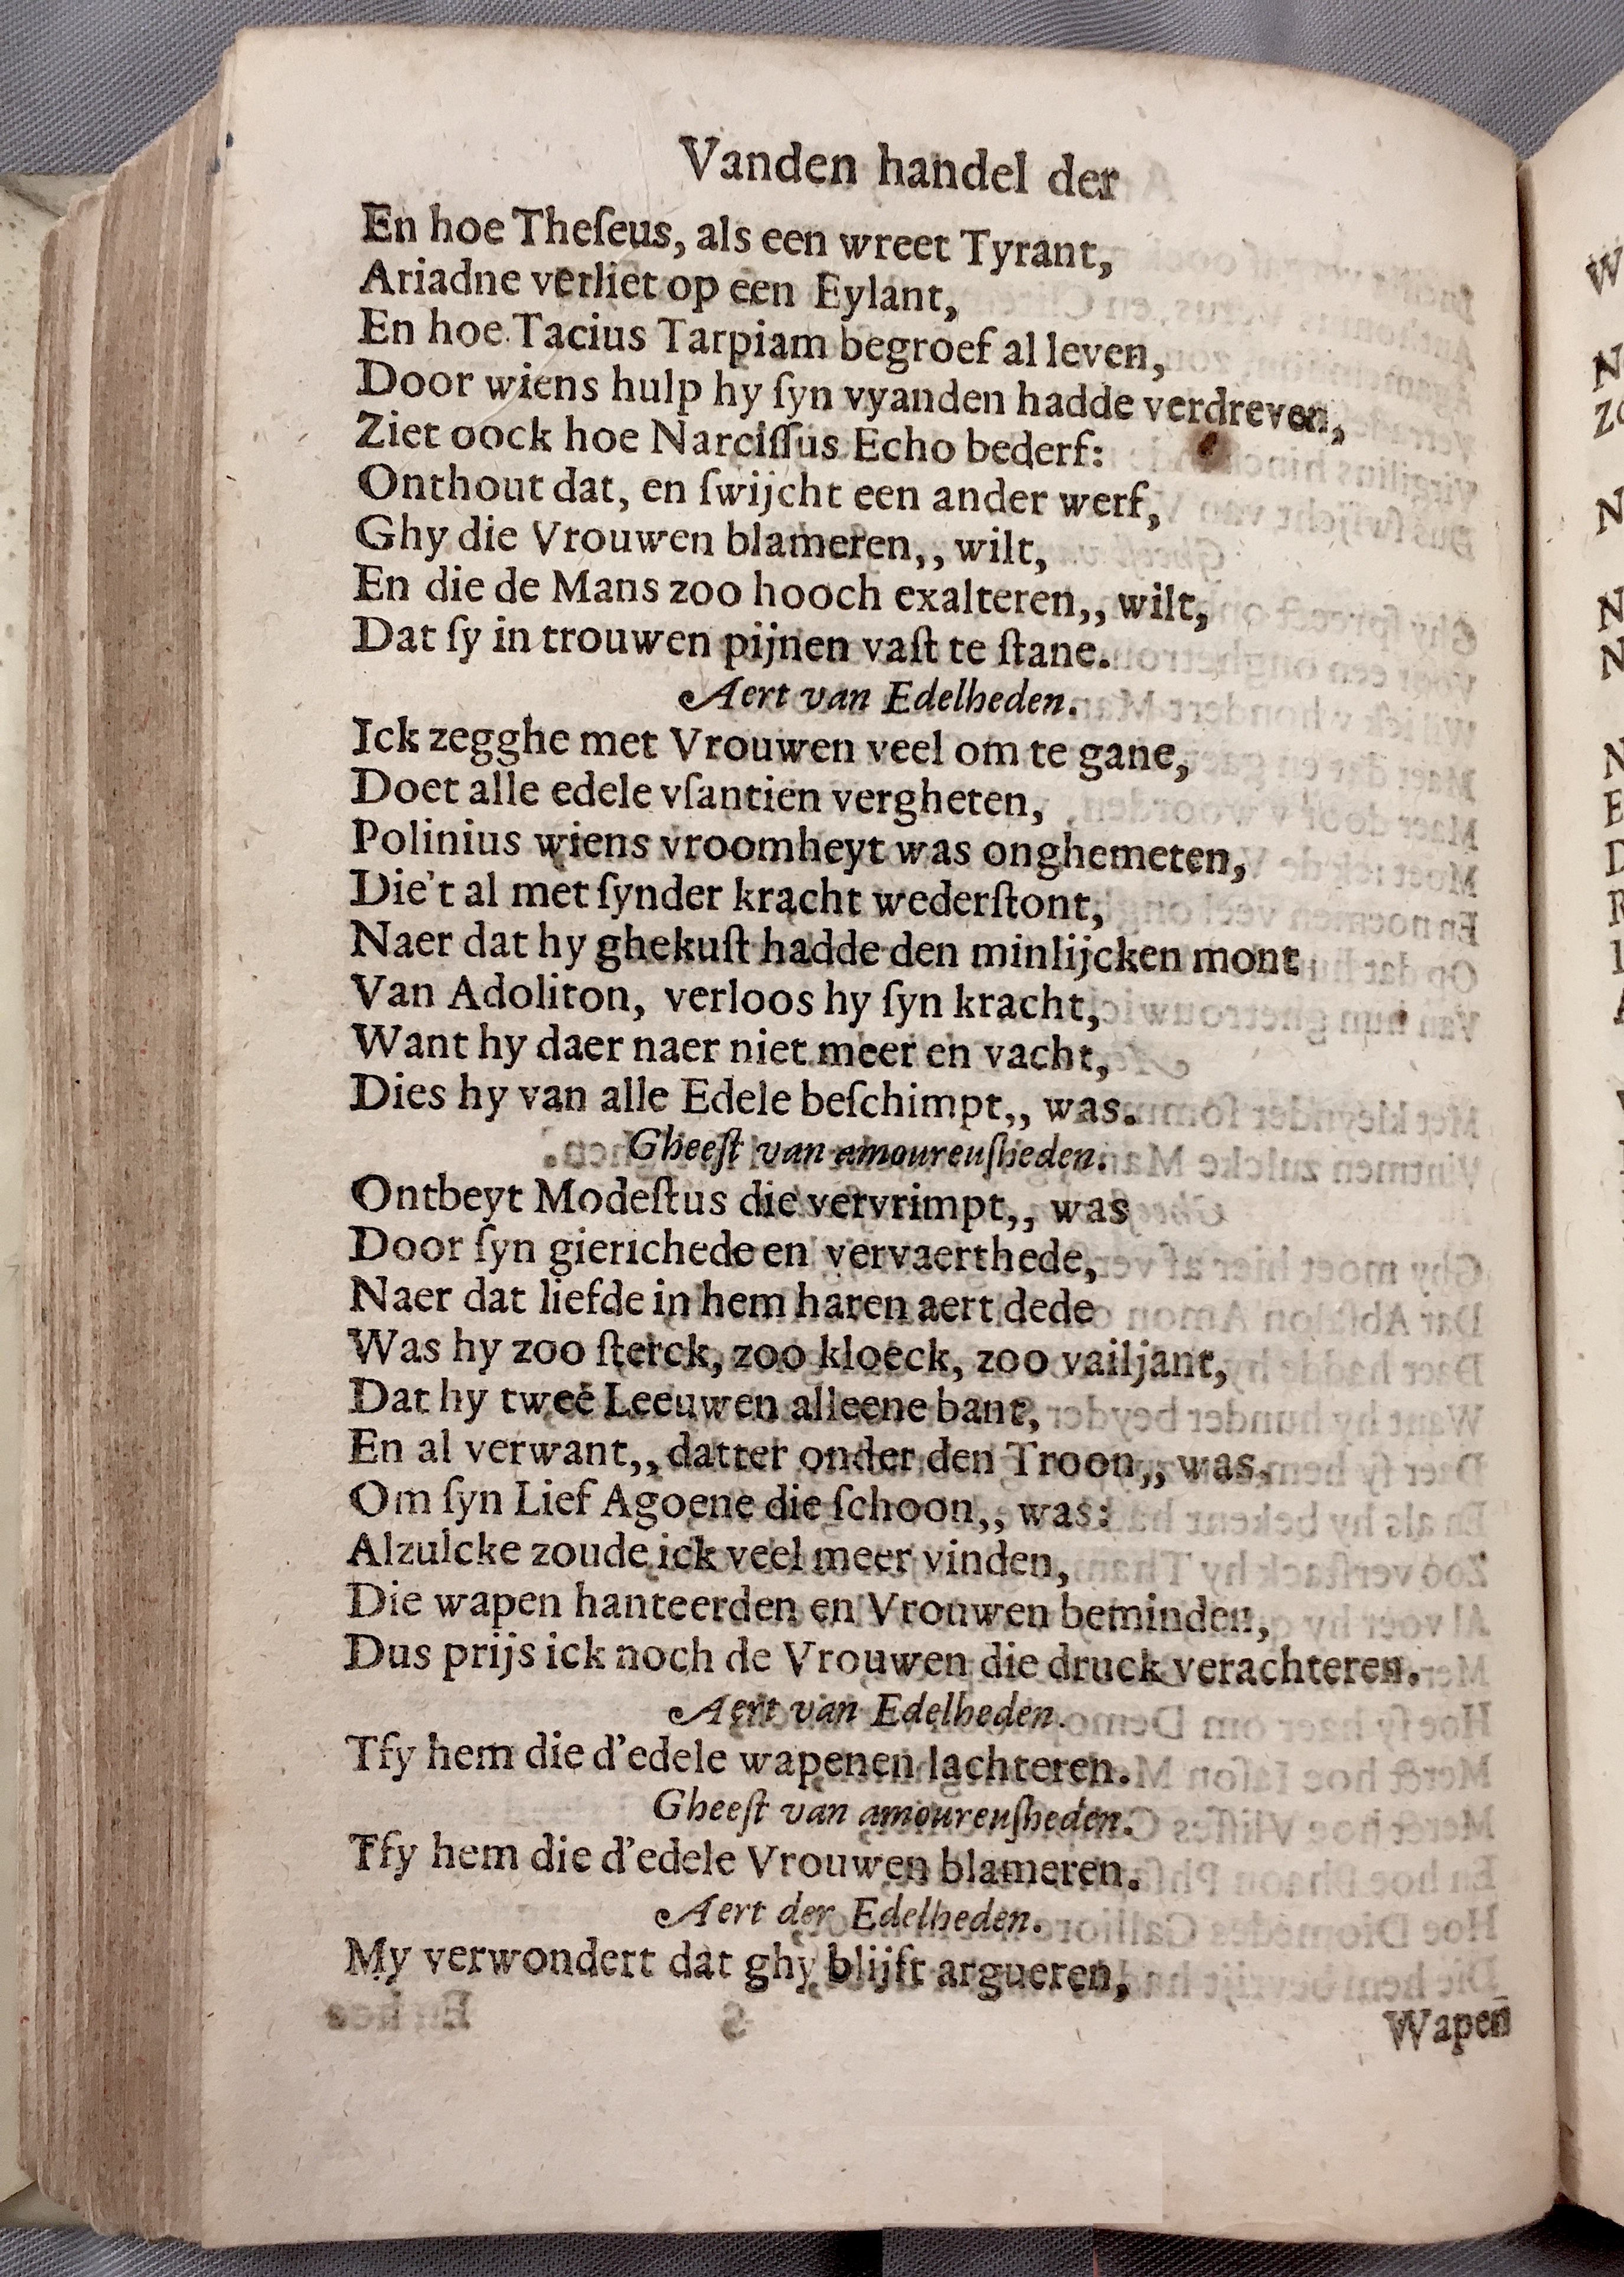 Vanden handel der
En hoe Theſeus, als een wreet Tyrant,
Ariadne verliet op een Eylant,
En hoe Tacius Tarpiam begroef al leven,
Door wiens hulp hy ſyn vyanden hadde verdreven,
Ziet oock hoe Narciſſus Echo bederf:
Onthout dat, en ſwijcht een ander werf,
Ghy die Vrouwen blameren,, wilt,
En die de Mans zoo hooch exalteren,, wilt,
Dat ſy in trouwen pijnen vaſt te ſtane.
Aert van Edelheden.
Ick zegghe met Vrouwen veel om te gane,
Doet alle edele vſantien vergheten,
Polinius wiens vroomheyt was onghemeten,
Die't al met ſynder kracht wederſtont,
Naer dat hy ghekuſt hadde den minlijcken mont
Van Adoliton, verloos hy ſyn kracht,
Want hy daer naer niet meer en vacht,
Dies hy van alle Edele beſchimpt,, was.
Gheeſt van amoureuſheden.
Ontbeyt Modeſtus die vervrimpt,, was
Door ſyn gierichede en vervaerthede,
Naer dat liefde in hem haren aert dede
Was hy zoo ſterck, zoo kloeck, zoo vailjant,
Dat hy twee Leeuwen alleene bant,
En al verwant,, datter onder den Troon,, was,
Om ſyn Lief Agoene die ſchoon,, was:
Alzulcke zoude ick veel meer vinden,
Die wapen hanteerden en Vrouwen beminden,
Dus prijs ick noch de Vrouwen die druck verachteren.
Aert van Edelheden.
Tfy hem die d'edele wapenen lachteren.
Gheeſt van amoureuſheden.
Tfy hem die d'edele Vrouwen blameren.
Aert der Edelheden.
My verwondert dat ghy blijft argueren,
Wapen̄